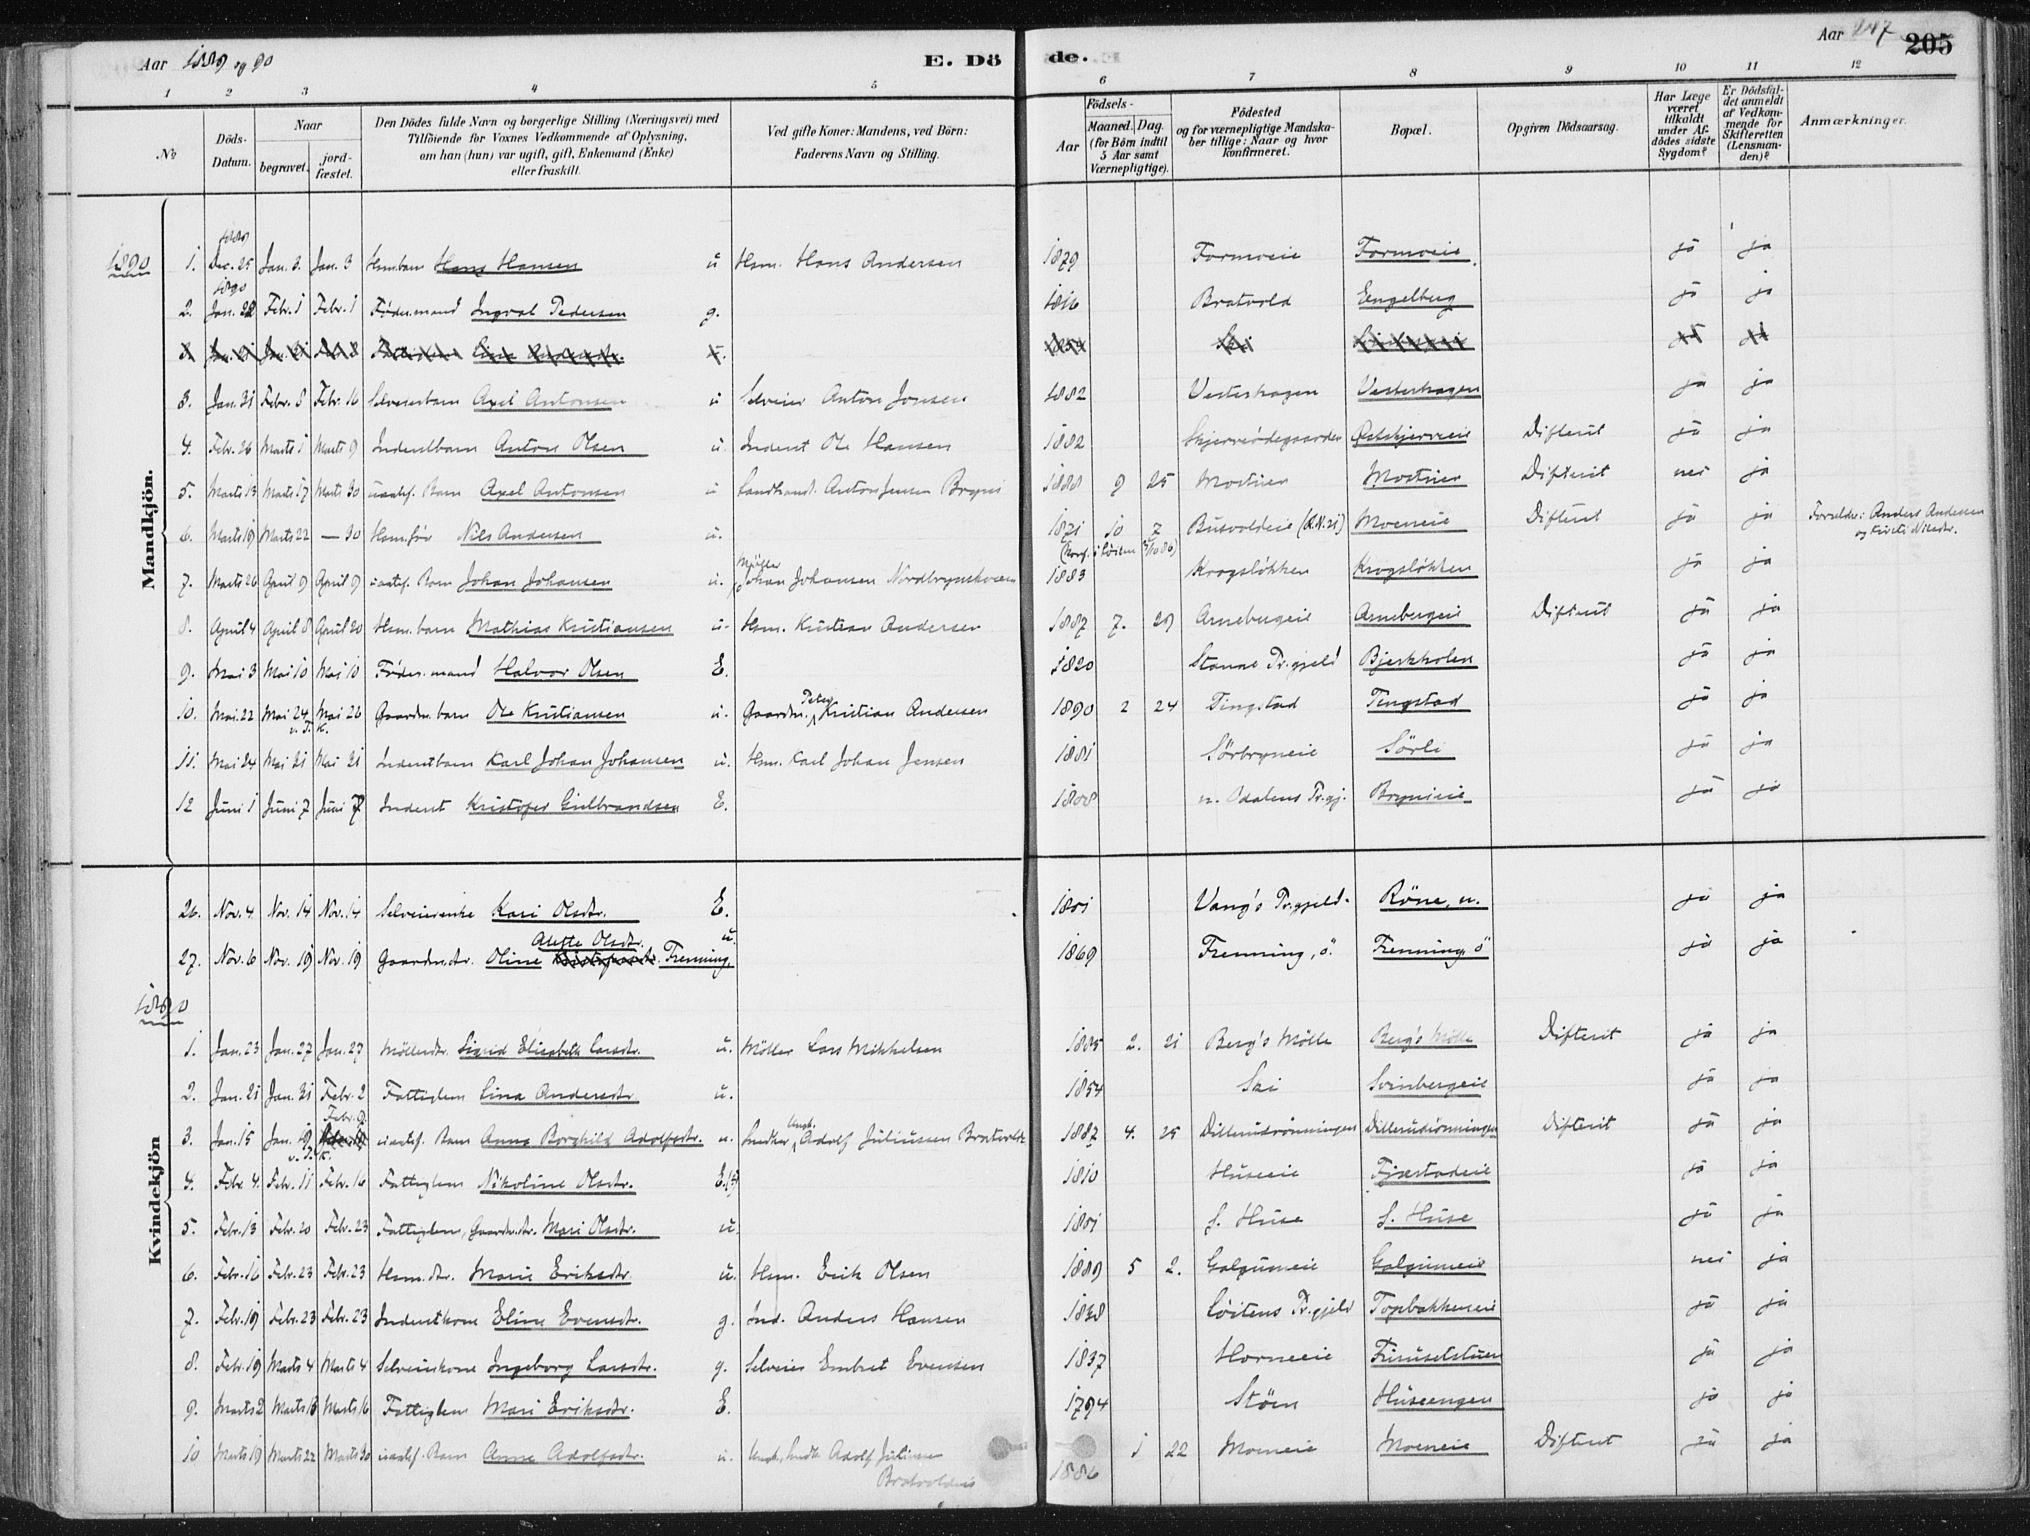 Aar 1889 og 90
E. Dö
de.
Aar
247
205
1 2 3 4 5 6 7 8 9 10 11 12
№
Döds-Datum.
Naar
begravet.
jord-fæstet.
Den Dödes fulde Navn og borgerlige Stilling (Næringsvei) med
Tilföiende for Voxnes Vedkommende af Oplysning,
om han (hun) var ugift, gift, Enkemand (Enke)
eller fraskilt.
Ved gifte Koner: Mandens, ved Börn:
Faderens Navn og Stilling.
Födsels-
Aar
Maaned. Dag.
(for Börn indtil
5 Aar samt
Værnepligtige).
Födested
og for værnepligtige Mandska-
ber tillige: Naar og hvor
konfirmeret.
Bopæl.
Opgiven Dödsaarsag.
Har Læge
været
tilkaldt
under Af-
dödes sidste
Sygdom?
Er Dödsfal-
det anmeldt
af Vedkom-
mende for
Skifteretten
(Lensman-
den)?
Anmærkninger.
Mandkjön.
1890
1. Dec. 25 Jan. 3. Jan. 3 Hsm.barn Hans Hansen u Hsm. Hans Andersen 1879 Formoeie Formoeie ja ja
1890
2. Jan. 22 Febr. 1 Febr. 1 Födes.mand Ingval Pedersen g. 1816 Bratvold Engelberg ja ja
3. Jan. 31 Febr. 8 Febr. 16 Selveierbarn Axel Antonsen u Selveier Anton Jonsen 1882 Vesterhagen Vesterhagen ja ja
4. Febr. 26 Marts 1 Marts 9 Inderstbarn Anton Olsen u. Inderst Ole Hansen 1882 Difterit ja ja
5. Marts 13 Marts 17 Marts 30 uægtef. Barn Axel Antonsen u Landhand. Anton Jensen Bryni 1888 9 25 Mostuen Mostuen Difterit nei ja
6. Marts 19 Marts 22 — 30 Nils Andersen u. 1871 10 7 Busvoldeie (A.N. 21) Moeneie Difterit ja ja Forældre: Anders Andersen
og Kirsti Nilsdr.
7. Marts 26 April 9 April 9 uægtef. Barn Johan Johansen u. Møller Johan Johansen 1883 Krogsløkken Krogsløkken ja ja
8. April 4 April 8 April 20 Hsm. barn Mathias Kristiansen u. Hsm. Kristian Andersen 1887 7. 29 Arnebergeie Arnebergeie Difterit ja ja
9. Mai 3 Mai 10 Mai 10 Födes. mand Halvor Olsen E. 1820 Stange Pr.gjeld Bjerkholen ja ja
10. Mai 22 Mai 24 Mai 26 Gaardm. barn Ole Kristiansen u. Gaardm. Peter Kristian Andersen 1890 2 24 Tingstad Tingstad ja ja
11. Mai 24 Mai 31 Mai 31 Inderstbarn Karl Johan Johansen u. Hsm. Karl Johan Jensen 1881 Sörbryneie Sörli ja ja
12 Juni 1 Juni 7 Juni 7 Inderst Kristofer Gulbrandsen E. 1808 n. Odalens Pr.gj. Brynieie ja ja
Kvindekjön
26. Nov. 4 Nov. 14 Nov. 14 Selveierenke Kari Olsdtr. E. 1801 Vang's Pr.gjeld Röne, n. ja ja
27. Nov. 6 Nov. 19 Nov. 19 Gaardm.dtr. Oline Alette Olsdtr. Frenning, u. 1869 Frenning, ö. Frenning, ö ja ja
1890
1. Jan. 23 Jan. 27 Jan. 27 Möllerdtr. Sigrid Elisabeth Larsdtr. u. Möller Lars Mikkelsen 1885 2. 21 Berg's Mölle Berg's Mölle Difterit ja ja
2. Jan. 21 Jan. 31 Febr. 2 Fattiglem Lina Andersdtr. u. 1854 Ski Svinbergeie ja ja
3. Jan. 15 Jan. 19 Febr. 9 uægtef. Barn Anna Borghild Adolfsdtr. u. Snedker Ungk. Adolf Juliussen Bratvold 1887 4. 25 Dillerudrönningen Dillerudrönningen Difterit ja ja
4. Febr. 4. Febr. 11 Febr. 16 Fattiglem Nikoline Olsdtr. E. 1810 Huseeie Fjæstadeie ja ja
5. Febr. 13 Febr. 20 Febr. 23 Fattiglem, Gaardm.dtr. Mari Olsdtr. u. 1801 S. Huse S. Huse ja ja
6. Febr. 16 Febr. 23 Febr. 23 Hsm. dtr. Marie Eriksdtr. u. Hsm. Erik Olsen 1889 5 2. Galgumeie Galgumeie nei ja
7. Febr. 19 Febr. 23 Febr. 23 Inderstkone Eline Evensdtr. g. Ind. Anders Hansen 1838 Löitens Pr.gjeld Topbakkeneie ja ja
8. Febr. 19 Marts 4 Marts 4 Selveierkone Ingeborg Larsdtr. g. Selveier Embret Evensen 1837 Horneeie Furusetstuen ja ja
9. Marts 2 Marts 13 Marts 16 Fattiglem Mari Eriksdtr. E. 1794 Stöen Huseengen ja ja
10 Marts 19 Marts 22 Marts 30 uægtef. Barn Anne Adolfsdtr. u. Ungk. Snedk. Adolf Juliussen
Bratvoldeie 1886 1 22 Moeneie Moeneie Difterit ja ja